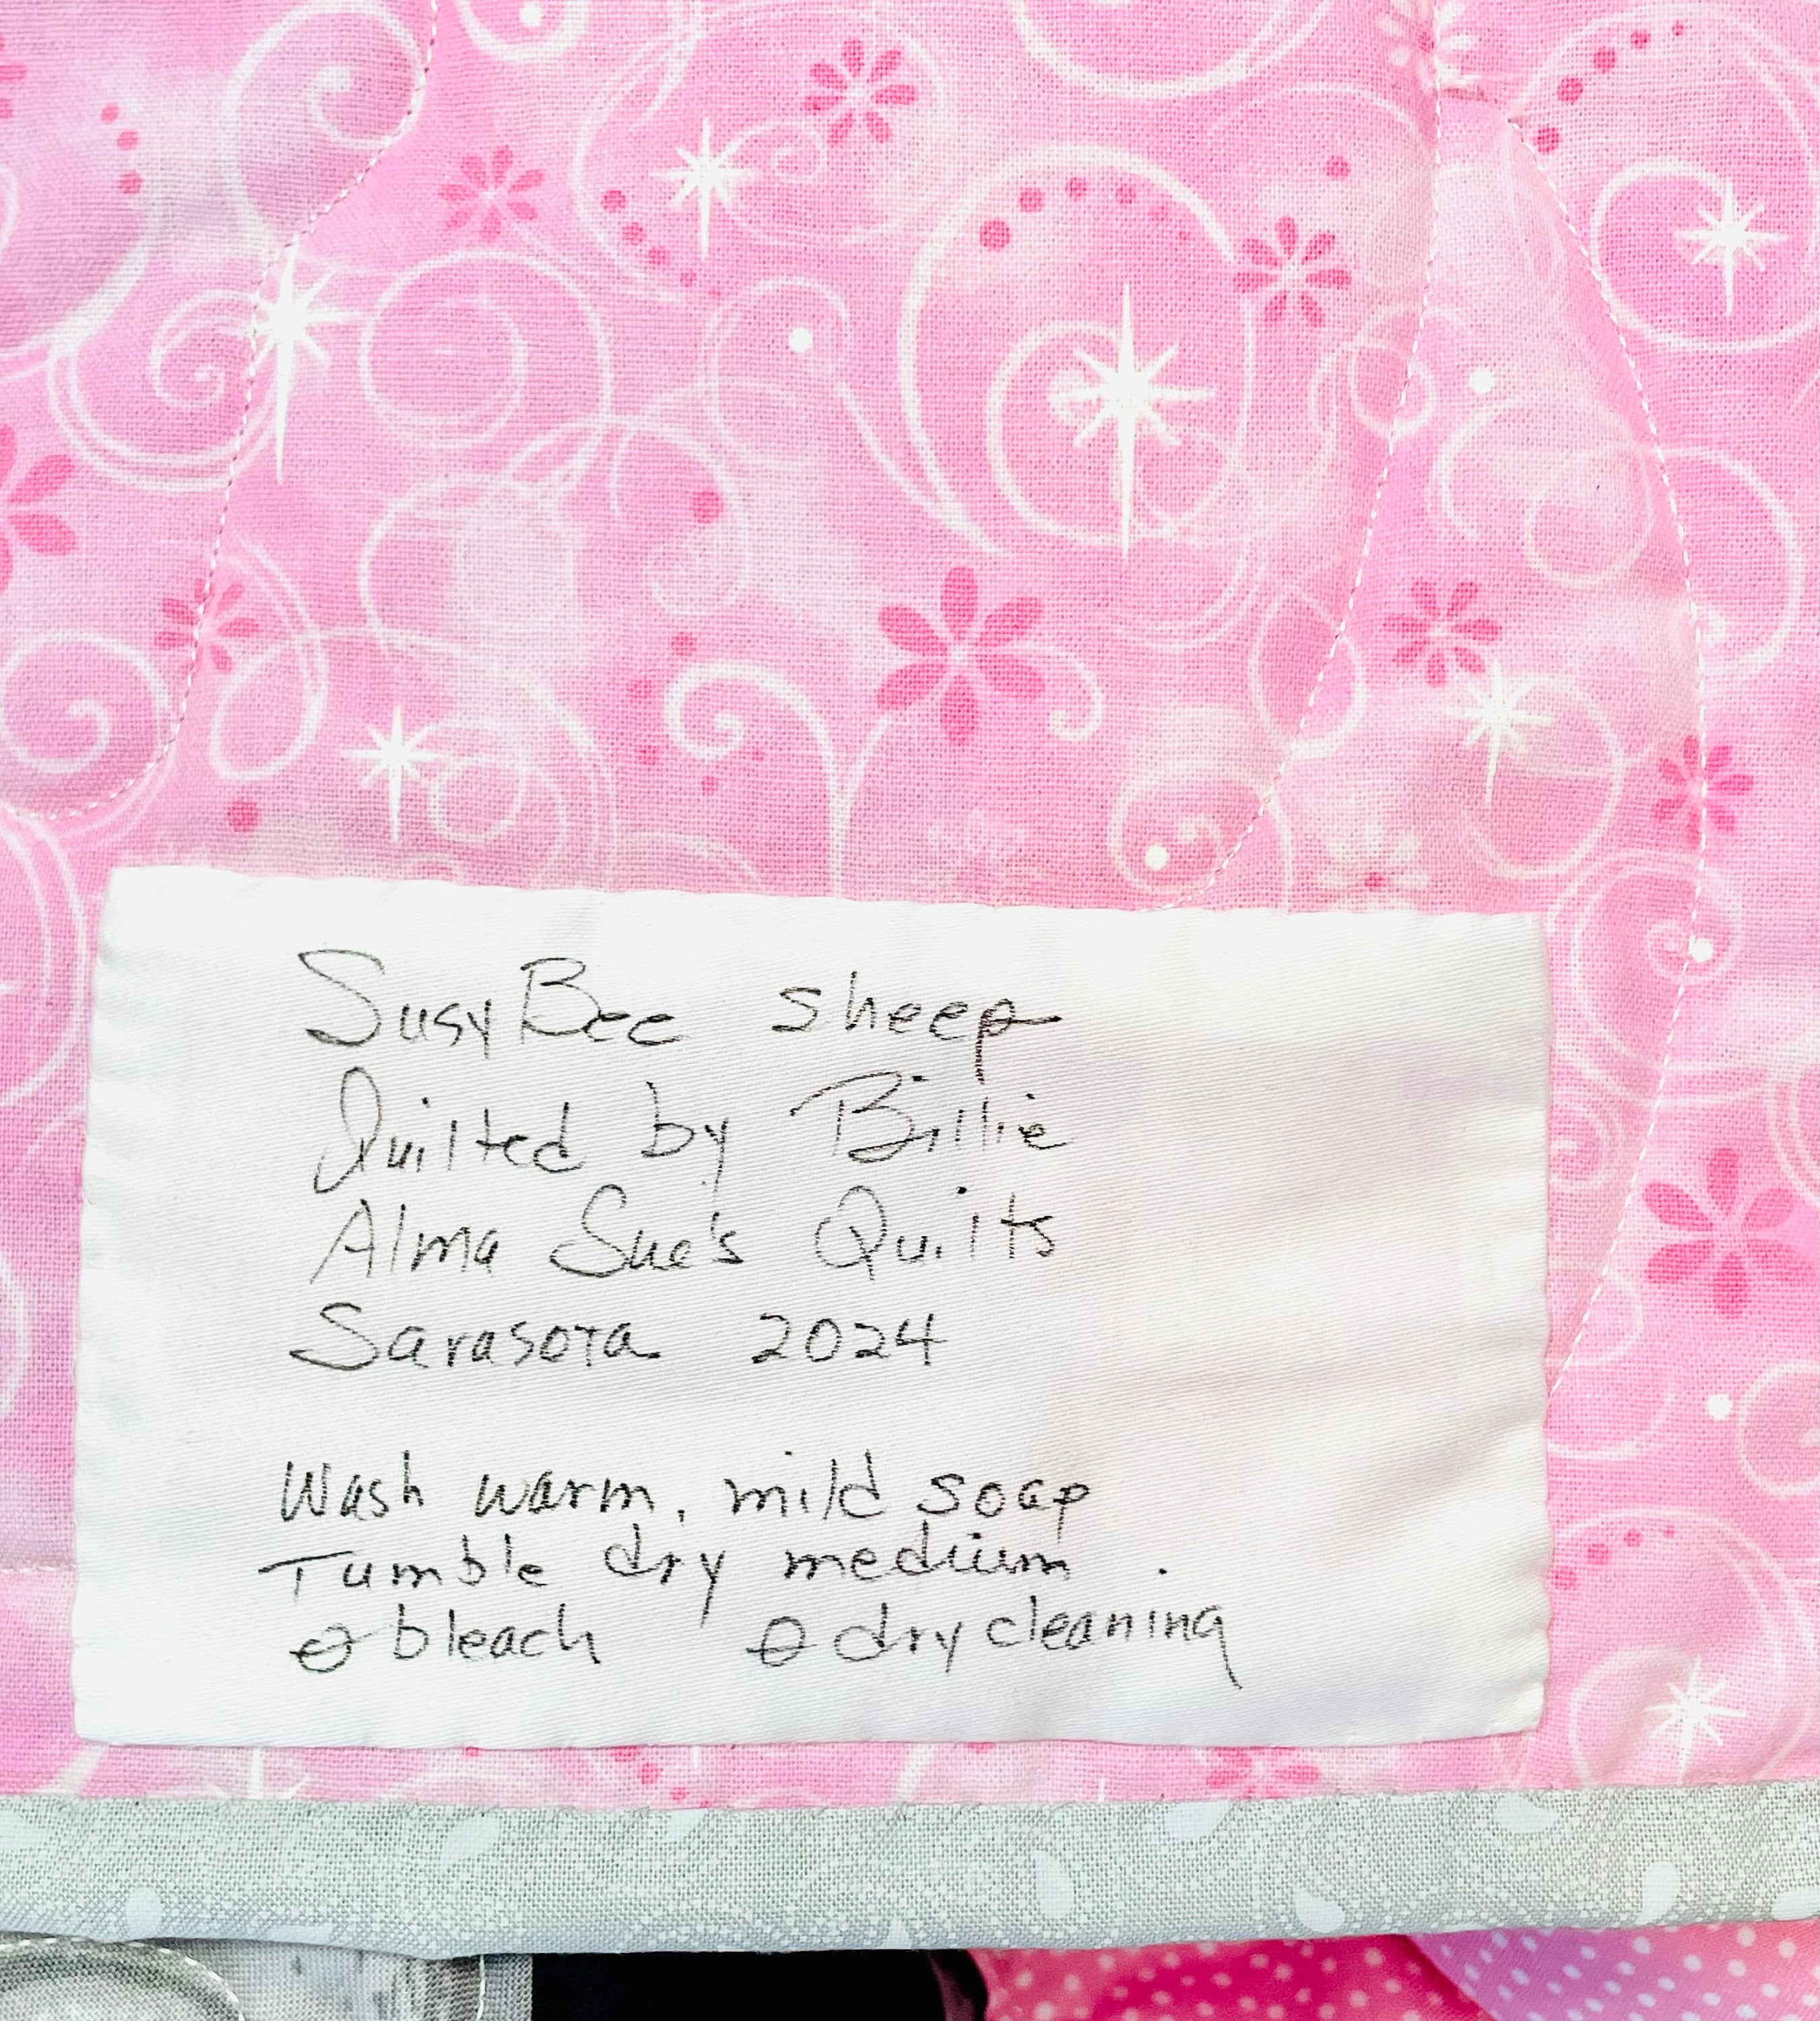 SusyBee sheep
Quilted by Billie
Alma Sue's Quilts
Sarasota 2024
Wash warm, mild soap
Tumble dry medium.
∅ bleach ∅ dry cleaning